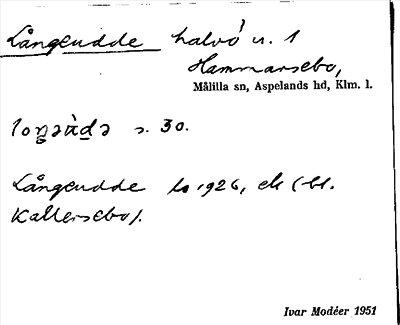 Långeudde halvö u. 1
Hammarsebo,
Målilla sn, Aspelands hd, Klm. l.
loŋəùdə s. 30.
Långeudde ls 1926, ek (bl.
Kallersebo).
Ivar Modéer 1951